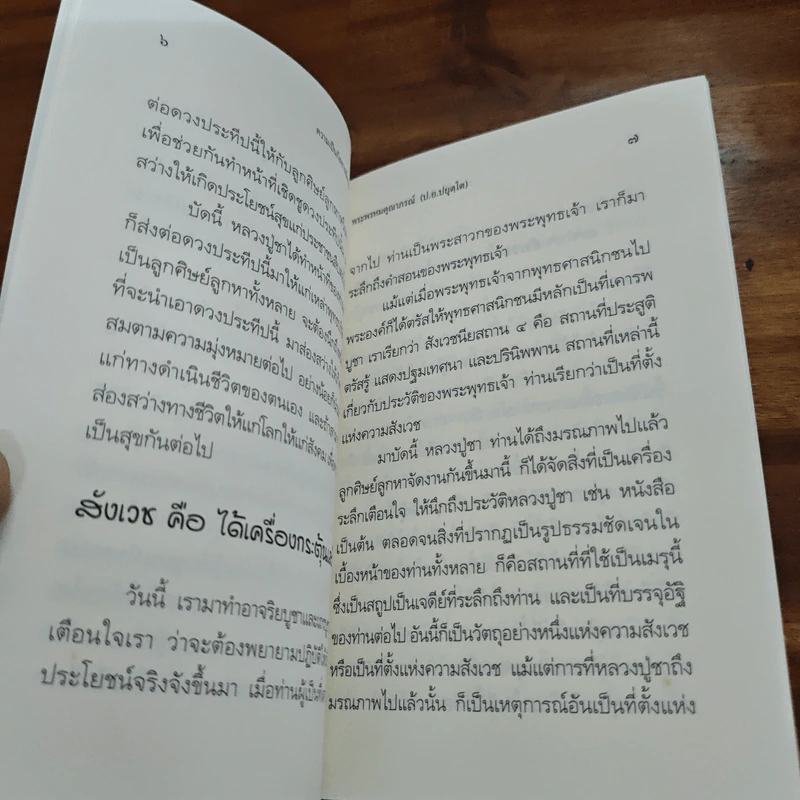 ๖
ความเป็น
ต่อดวงประทีปนี้ให้กับลูกศิษย์ลูกหา
เพื่อช่วยกันทำหน้าที่เชิดชูดวงประทีป
สว่างให้เกิดประโยชน์สุขแก่ประชาชน
บัดนี้ หลวงปู่ชาได้ทำหน้าที่ของ
ก็ส่งต่อดวงประทีปนี้มาให้แก่เหล่า
เป็นลูกศิษย์ลูกหาทั้งหลาย จะต้อง
ที่จะนำเอาดวงประทีปนี้ มาส่องสว่าง
สมตามความมุ่งหมายต่อไป อย่างน้อย
แก่ทางดำเนินชีวิตของตนเอง และ
ส่องสว่างทางชีวิตให้แก่โลกให้แก่สังคม
เป็นสุขกันต่อไป
สังเวช คือ ได้เครื่องกระตุ้น
วันนี้ เรามาทำอาจริยบูชาและ
เตือนใจเรา ว่าจะต้องพยายามปฏิบัติ
ประโยชน์จริงจังขึ้นมา เมื่อท่านผู้เป็น
๗
พระพรหมคุณาภรณ์ (ป.อ.ปยุตฺโต)
จากไป ท่านเป็นพระสาวกของพระพุทธเจ้า เราก็มา
ระลึกถึงคำสอนของพระพุทธเจ้า
แม้แต่เมื่อพระพุทธเจ้าจากพุทธศาสนิกชนไป
พระองค์ก็ได้ตรัสให้พุทธศาสนิกชนมีหลักเป็นที่เคารพ
บูชา เราเรียกว่า สังเวชนียสถาน ๔ คือ สถานที่ประสูติ
ตรัสรู้ แสดงปฐมเทศนา และปรินิพพาน สถานที่เหล่านี้
เกี่ยวกับประวัติของพระพุทธเจ้า ท่านเรียกว่าเป็นที่ตั้ง
แห่งความสังเวช
มาบัดนี้ หลวงปู่ชา ท่านได้ถึงมรณภาพไปแล้ว
ลูกศิษย์ลูกหาจัดงานกันขึ้นมานี้ ก็ได้จัดสิ่งที่เป็นเครื่อง
ระลึกเตือนใจ ให้นึกถึงประวัติหลวงปู่ชา เช่น หนังสือ
เป็นต้น ตลอดจนสิ่งที่ปรากฏเป็นรูปธรรมชัดเจนใน
เบื้องหน้าของท่านทั้งหลาย ก็คือสถานที่ที่ใช้เป็นเมรุนี้
ซึ่งเป็นสถูปเป็นเจดีย์ที่ระลึกถึงท่าน และเป็นที่บรรจุอัฐิ
ของท่านต่อไป อันนี้ก็เป็นวัตถุอย่างหนึ่งแห่งความสังเวช
หรือเป็นที่ตั้งแห่งความสังเวช แม้แต่การที่หลวงปู่ชาถึง
มรณภาพไปแล้วนั้น ก็เป็นเหตุการณ์อันเป็นที่ตั้งแห่ง